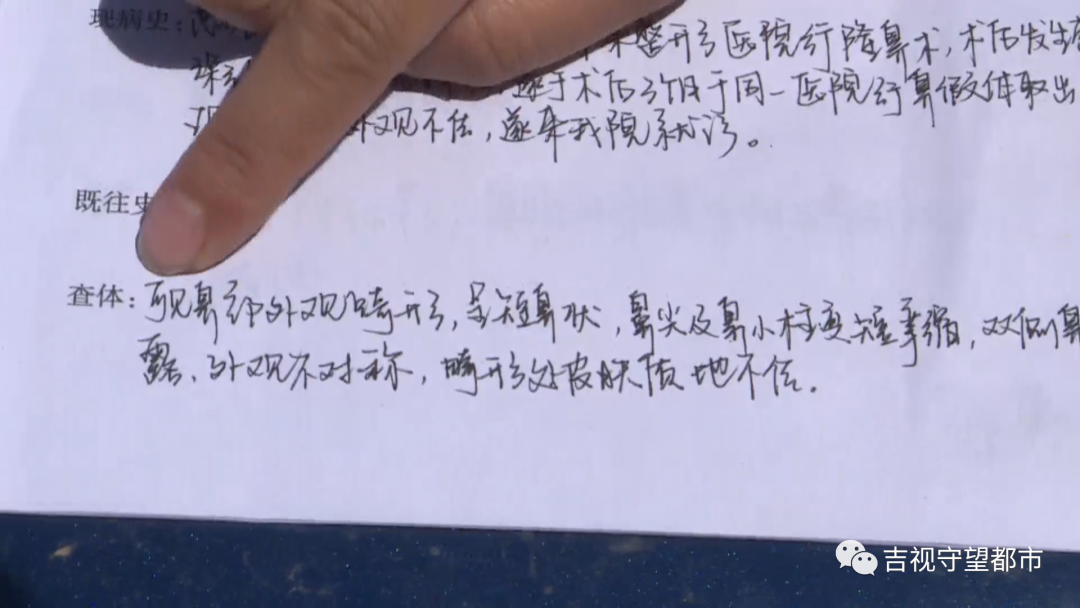 现病史：
某整形医院行隆鼻术，术后发生
遂于术后3个月于同一医院行鼻假体取出
外观不佳，遂来我院就诊。
既往史
查体：可见鼻部外观畸形，呈短鼻状，鼻尖及鼻小柱短挛缩，双侧鼻
露、外观不对称，畸形处皮肤质地不佳。
吉视守望都市